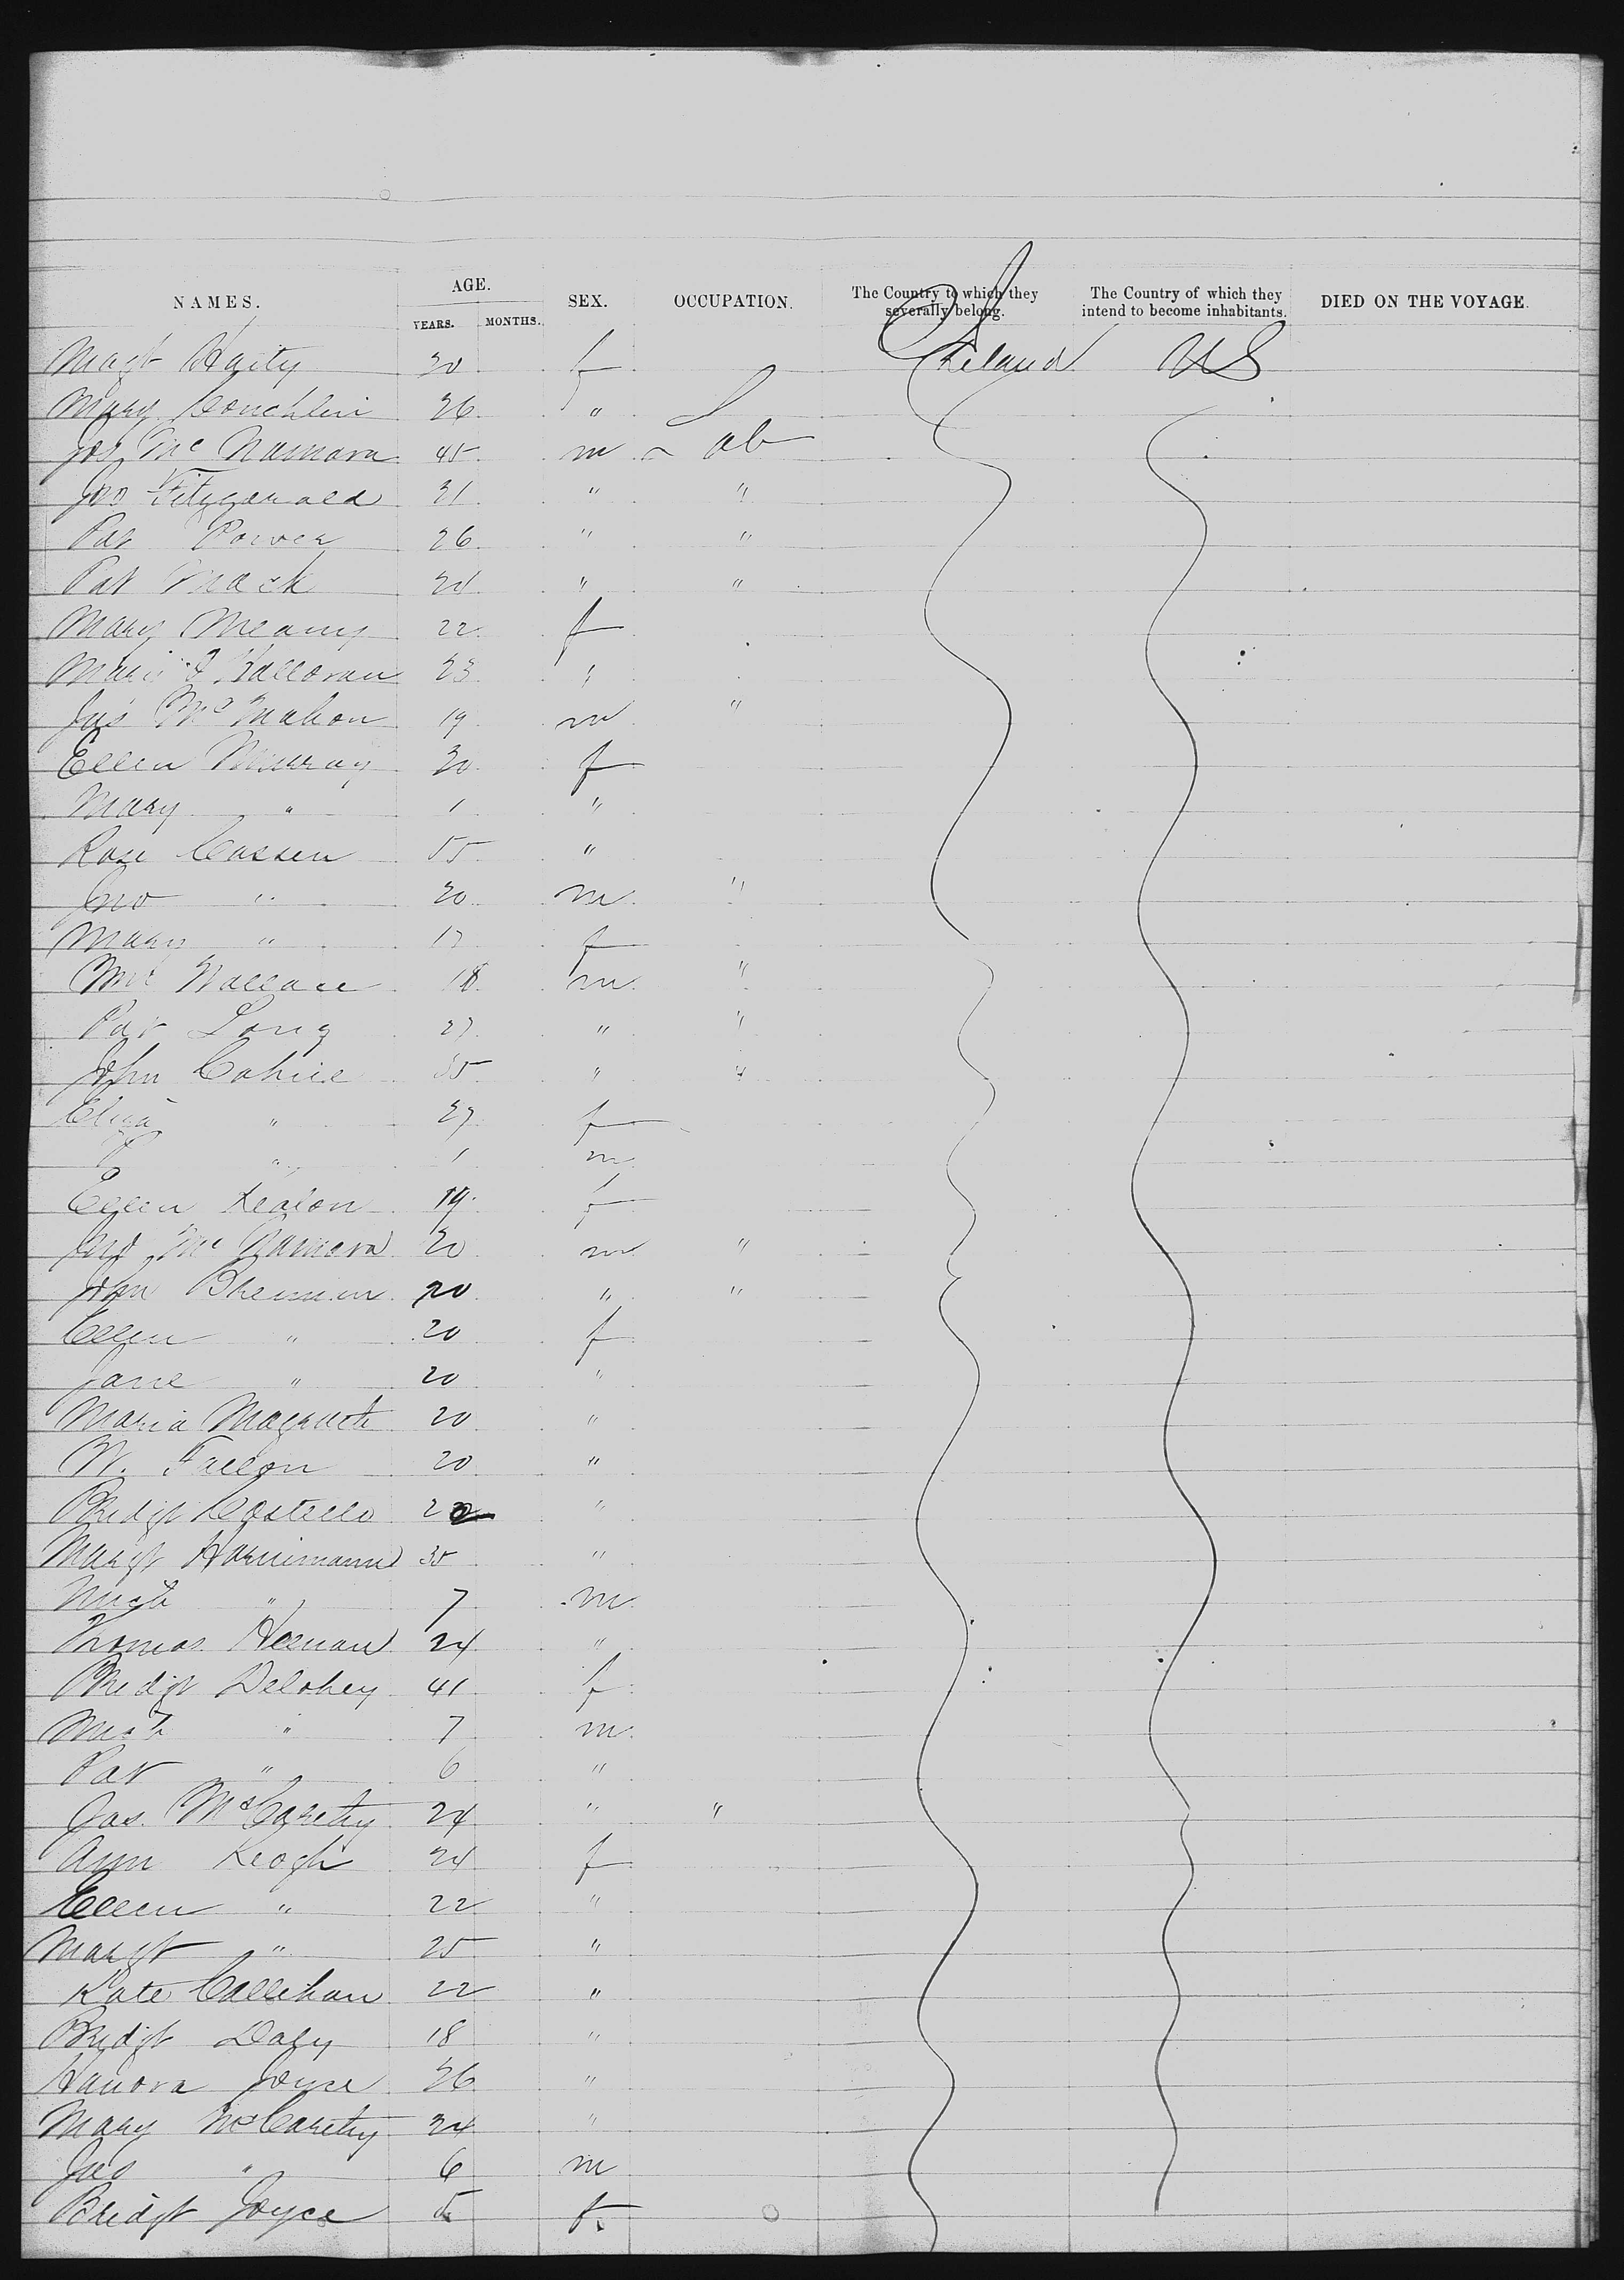 NAMES. AGE. SEX. OCCUPATION. The Country to which they severally belong. The Country of which they intend to become inhabitants. DIED ON THE VOYAGE.
YEARS. MONTHS.
Magt Harty 30 f Ireland US
Mary Conchlin 26 "
Jos Mc Namara 45 m Lab
Jno Fitzgerald 21 " "
Pat Power 26 " "
Pat Mack 24 " "
Mary Meany 22 f
Mary O'Halloran 23 "
Jas Mc Mahon 19 m "
Ellen Murray 30 f
Mary " 1 "
Rose Cassen 55 "
Jno " 20 m "
Mary " 17 f
Wallace 18 m "
Pat Long 27 " "
John Cahill 35 " "
Eliza " 27 f
P " 1 m
Ellen Kealon 19 f
Jno Mc Namara 20 m "
John Brennan 20 " "
Ellen " 20 f
Jane " 20 "
Maria Magrath 20 "
W. Fallon 20 "
Bridgt Costello 22 "
Margt 35 "
Mich " 7 m
Thomas Heenan 24 "
Bridgt Delohey 41 f
Mich " 7 m
Pat " 6 "
Jas. McCarthy 24 " "
Ann Keogh 24 f
Ellen " 22 "
Margt " 25 "
Kate Callihan 22 "
Bridgt Daly 18 "
Hanora Joyce 26 "
Mary McCarthy 24 "
Jno " 6 m
Bridgt Joyce 5 f